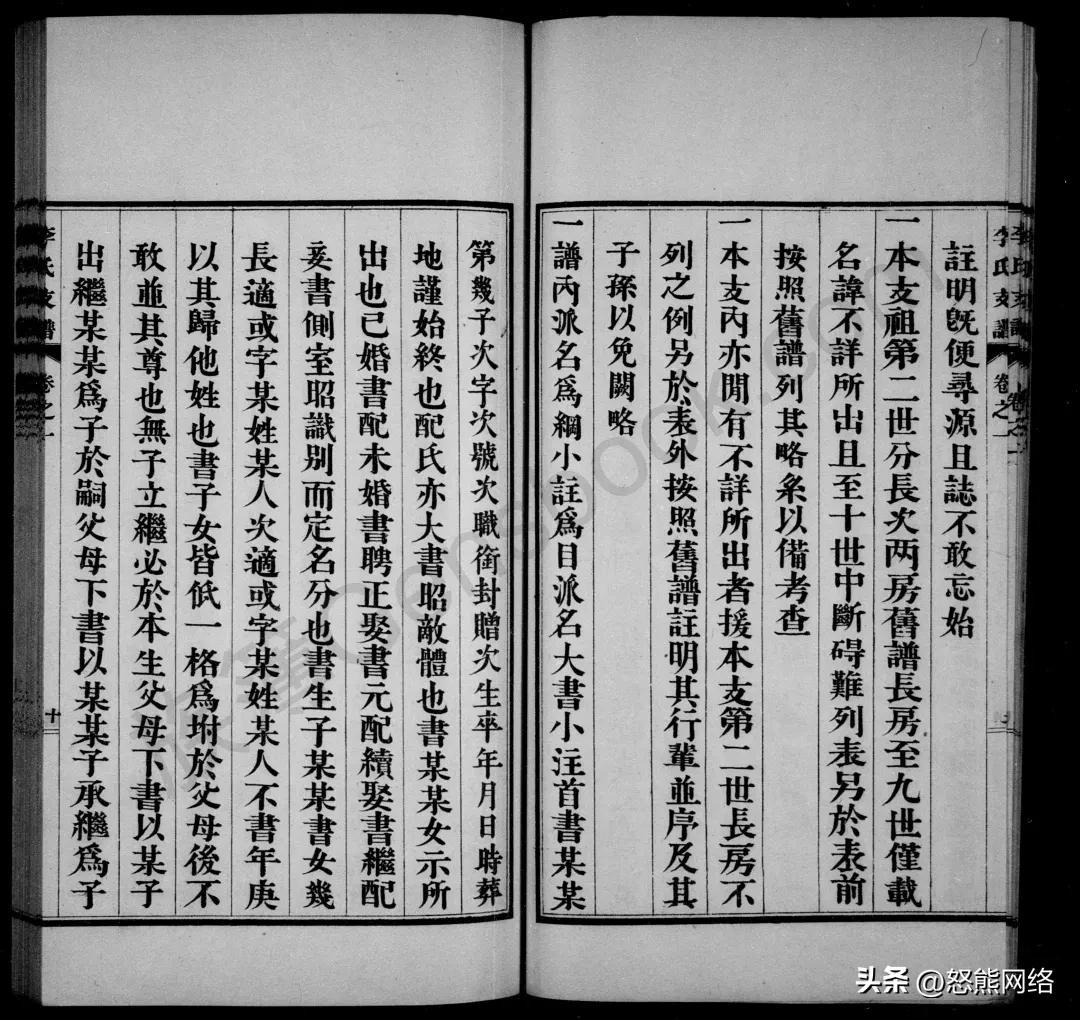 李氏支譜
卷之一
註明旣便尋源且誌不敢忘始
一本支祖第二世分長次两房舊譜長房至九世僅載
名諱不詳所出且至十世中斷碍難列表另於表前
按照舊譜列其略系以備考查
一本支內亦閒有不詳所出者援本支第二世長房不
列之例另於表外按照舊譜註明其行輩並序及其
子孫以免闕略
一譜內派名爲綱小註爲目派名大書小注首書某某
第幾子次字次號次職銜封贈次生卒年月日時葬
地謹始終也配氏亦大書昭敵體也書某某女示所
出也已婚書配未婚書聘正娶書元配續娶書繼配
妾書側室昭識别而定名分也書生子某某書女幾
長適或字某姓某人次適或字某姓某人不書年庚
以其歸他姓也書子女皆低一格爲坿於父母後不
敢並其尊也無子立繼必於本生父母下書以某子
出繼某某爲子於嗣父母下書以某某子承繼爲子
李氏支譜
卷之一
十二
族譜Genebook.com
头条 @怒熊网络